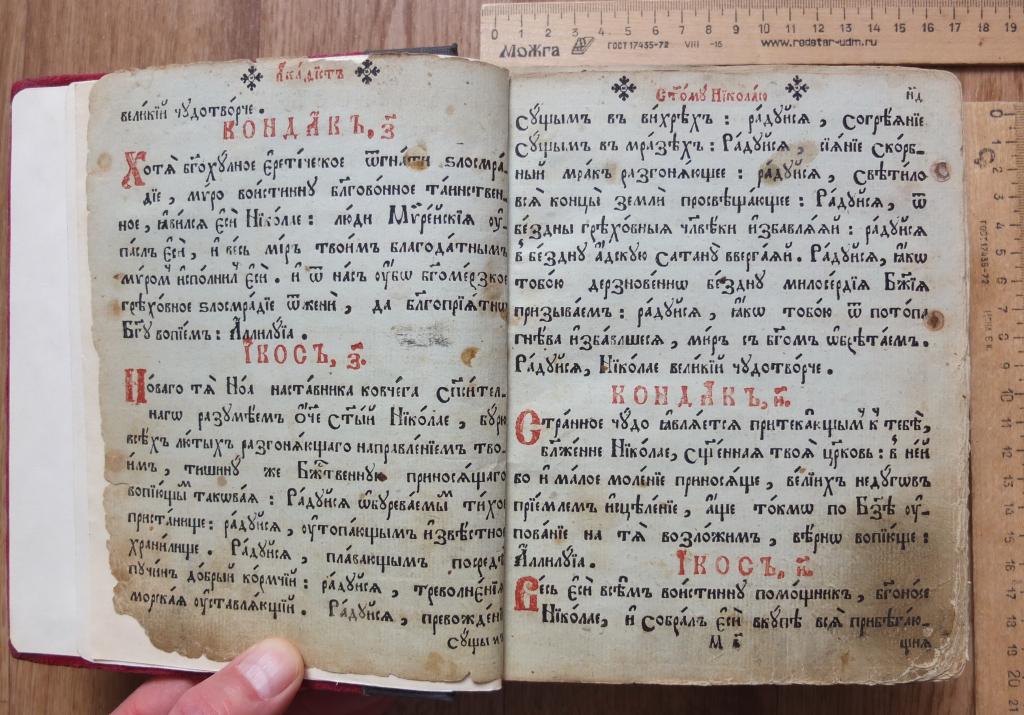 Акаѳістъ
вели́кїй чꙋдотво́рче .
КОНДА́КЪ, з҃
Хотѧ̀ бг҃охꙋ́лное є҆рети́ческое ѿгна́ти ѕлосмра́-
дїе , мѵ́ро вои́стиннꙋ бл҃гово́нное та́инствен-
ное , ꙗ҆ви́лсѧ є҆сѝ Нїко́лае : лю́ди Мѵре́йскїѧ ᲂу҆-
па́слъ є҆сѝ , и҆ ве́сь мі́ръ твои́мъ благода́тнымъ
мѵ́ромъ и҆спо́лнилъ є҆сѝ . и҆ ѿ на́съ ᲂу҆́бѡ бг҃оме́рзкое
грѣхо́вное ѕлосмра́дїе ѿженѝ , да бл҃гопрїѧ́тнѡ
Бг҃ꙋ вопїе́мъ : А҆ллилꙋ́їа .
І҆́КОСЪ, з҃.
Но́ваго тѧ̀ Но́а наста́вника ковче́га сп҃си́тел-
нагѡ разꙋмѣ́емъ ѻ҆́че ст҃ы́й Нїко́лае , бꙋ́рю
всѣ́хъ лю́тыхъ разгонѧ́ющаго направле́нїемъ тво-
и́мъ , тишинꙋ́ же Бж҃твеннꙋю приносѧ́щаго
вопїю́щымъ такѡва́ѧ : Ра́дꙋйсѧ ѡ҆бꙋрева́емымъ ти́хое
приста́нище : ра́дꙋйсѧ , ᲂу҆топа́ющымъ и҆звѣ́стное
храни́лище . Ра́дꙋйсѧ , пла́вающымъ посредѣ̀
пꙋчи́нъ до́брый ко́рмчїй : ра́дꙋйсѧ , треволнє́нїѧ
морска́ѧ ᲂу҆ставлѧ́ющїй . Ра́дꙋйсѧ , превожде́нїе
сꙋ́щымъ
Ст҃о́мꙋ Нїко́лаю
н҃д
сꙋ́щымъ въ ви́хрѣхъ : ра́дꙋйсѧ , согрѣѧ́нїе
сꙋ́щымъ въ мра́зѣхъ : Ра́дꙋйсѧ , сїѧ́нїе ско́рб-
ный мра́къ разгонѧ́ющее : ра́дꙋйсѧ , свѣти́ло
всѧ̑ концы̀ землѝ просвѣща́ющее : Ра́дꙋйсѧ , ѿ
бе́здны грѣхо́вныѧ чл҃вѣ́ки и҆збавлѧ́ѧй : ра́дꙋйсѧ
в бе́зднꙋ а҆́дскꙋю сатанꙋ̀ вверга́ѧй . Ра́дꙋйсѧ , ꙗ҆́кѡ
тобо́ю дерзнове́ннѡ бе́зднꙋ милосе́рдїѧ Бж҃їѧ
призыва́емъ : ра́дꙋйсѧ , ꙗ҆́кѡ тобо́ю ѿ пото́па
гнѣ́ва и҆зба́вльшесѧ , ми́ръ съ бг҃омъ ѡ҆брѣта́емъ .
Ра́дꙋйсѧ , Нїко́лае вели́кїй чꙋдотво́рче .
КОНДА́КЪ, и҃.
Стра́нное чꙋ́до ꙗ҆влѧ́етсѧ притека́ющымъ к̾ тебѣ̀ ,
бл҃же́нне Нїко́лае , сщ҃е́ннаѧ твоѧ̀ цр҃ковь : в не́й
во и҆ ма́лое моле́нїе приносѧ́ще , вели́їихъ недꙋ́гѡвъ
прїе́млемъ и҆сцѣле́нїе , а҆́ще то́кмѡ по Бз҃ѣ ᲂу҆-
пова́нїе на тѧ̀ возло́жимъ , вѣ́рнѡ вопїю́ще :
А҆ллилꙋ́їа .
І҆́КОСЪ, и҃.
Ве́сь є҆сѝ всѣ̑мъ вои́стиннꙋ помо́щникъ , бг҃оно́се
Нїко́лае , и҆ собра́лъ є҆сѝ вкꙋ́пѣ всѧ̑ прибѣга́ю-
М в҃
щыѧ
0 1 2 3 4 5 6 7 8 9 10 11 12 13 14 15 16 17 18 19
Можга
ГОСТ 17435-72 VIII -15
www.redstar-udm.ru
0 1 2 3 4 5 6 7 8 9 10 11 12 13 14 15 16 17 18 19 20 21
ГОСТ 17435-72